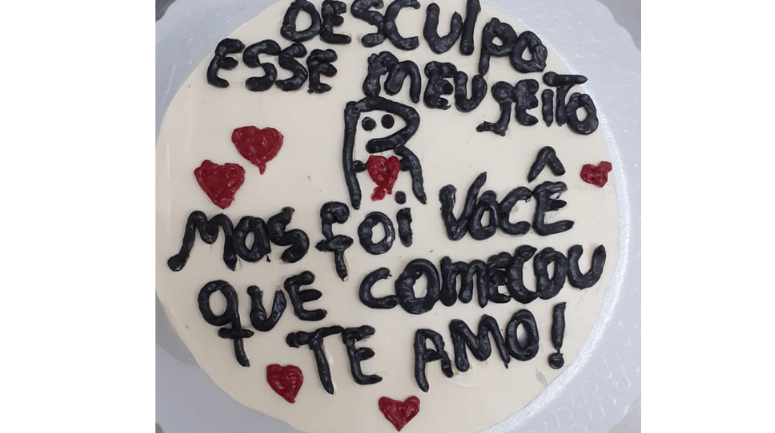 DESCULPA
ESSE MEU JEITO
MAS foi VOCÊ
QUE COMEÇOU
TE AMO!